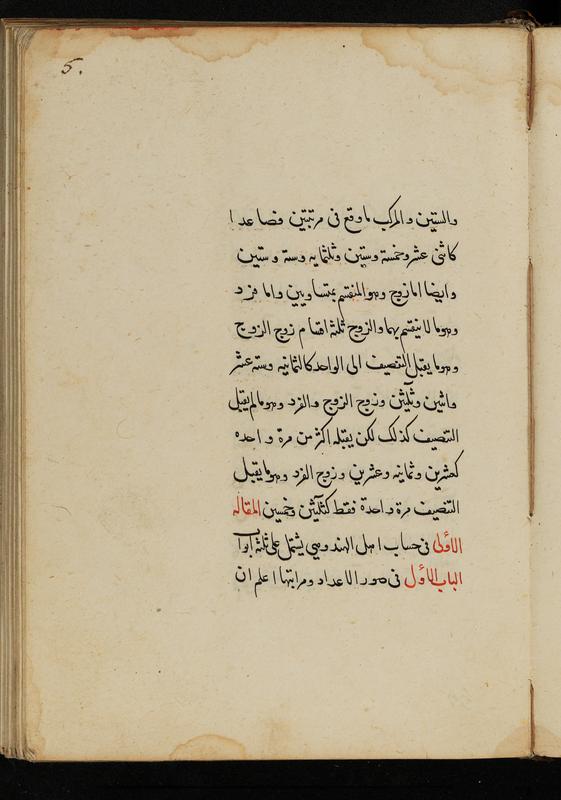 5.
والستين والمركب ما وقع فى مرتبتين فصاعدا
كاثنى عشر وخمسة وستين وثلثمايه وستة وستين
وايضا اما زوج وهو المنقسم بمتساويين واما فرد
وهو ما لا ينقسم بهما والزوج ثلثة اقسام زوج الزوج
وهو ما يقبل التنصيف الى الواحد كالثمانيه وستة عشر
واثنين وثلثين وزوج الزوج والفرد وهو ما لم يقبل
التنصيف كذلك لكن يقبله اكثر من مرة واحده
كعشرين وثمانيه وعشرين وزوج الفرد وهو ما يقبل
التنصيف مرة واحدة فقط كثلثين وخمسين المقاله
الاولى فى حساب اهل الهند وهى يشتمل على ثلثة ابواب
الباب الاول فى صور الاعداد ومراتبها اعلم ان